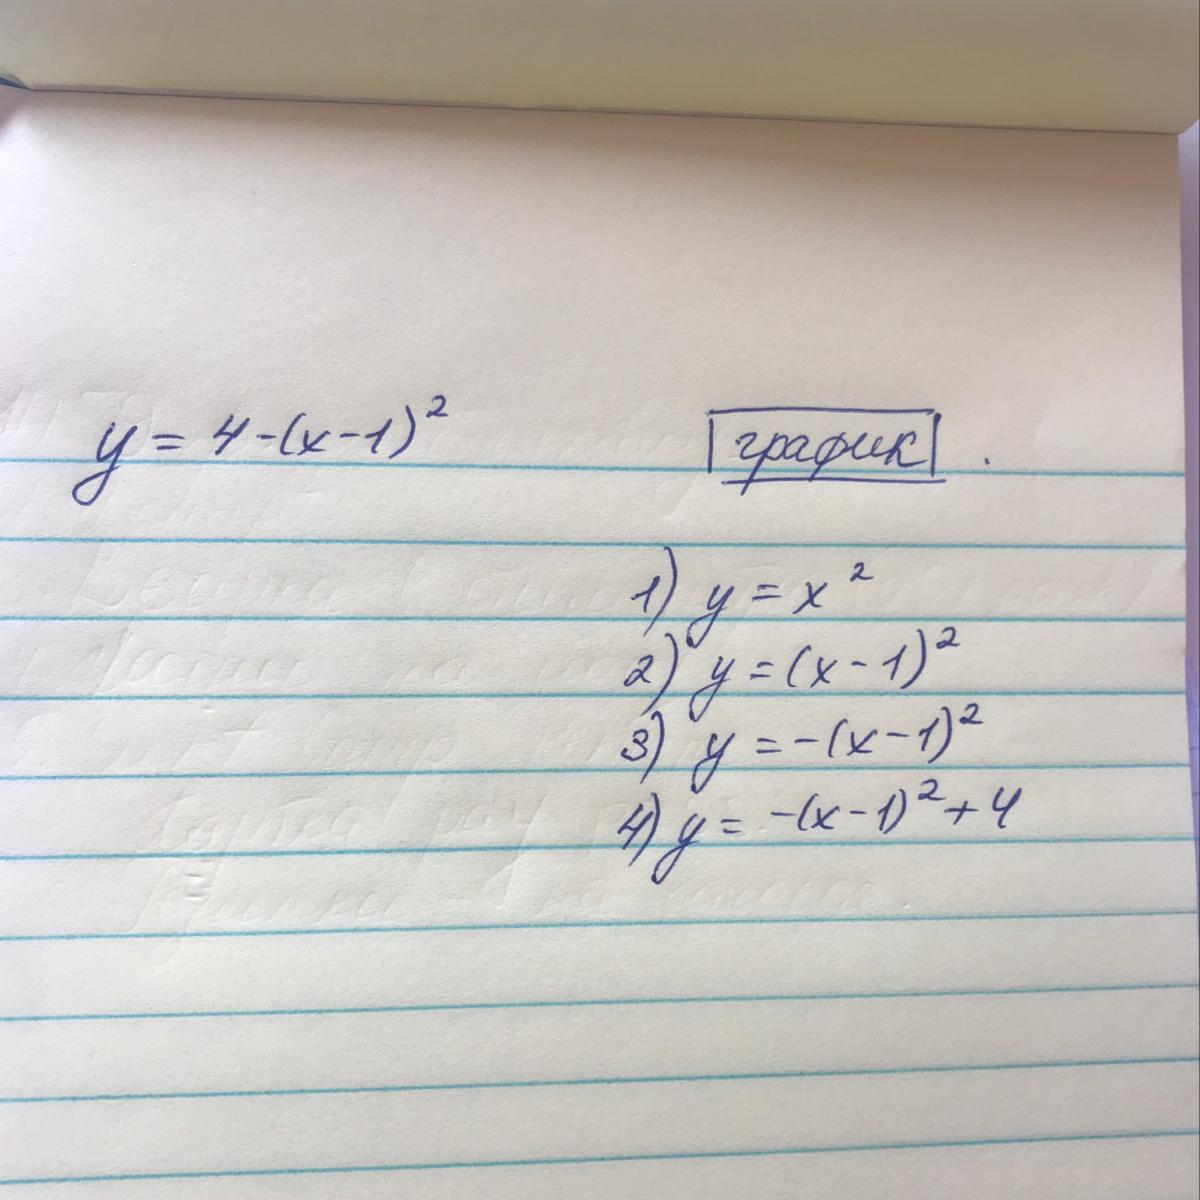 y = 4-(x-1)²
график .
1) y = x²
2) y = (x-1)²
3) y = -(x-1)²
4) y = -(x-1)² + 4